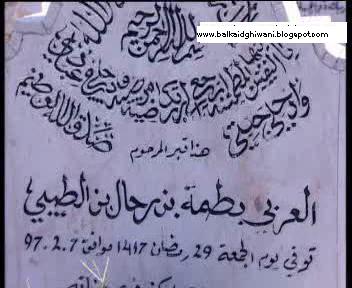 www.balkaidghiwani.blogspot.com
بسم الله الرحمن الرحيم
يا أيتها النفس المطمئنة ارجعي إلى ربك راضية مرضية فادخلي في عبادي
وادخلي جنتي
صدق الله العظيم
هذا قبر المرحوم
العربي بطمة بن رحال بن الطيبي
توفي يوم الجمعة 29 رمضان 1417 موافق 97.2.7